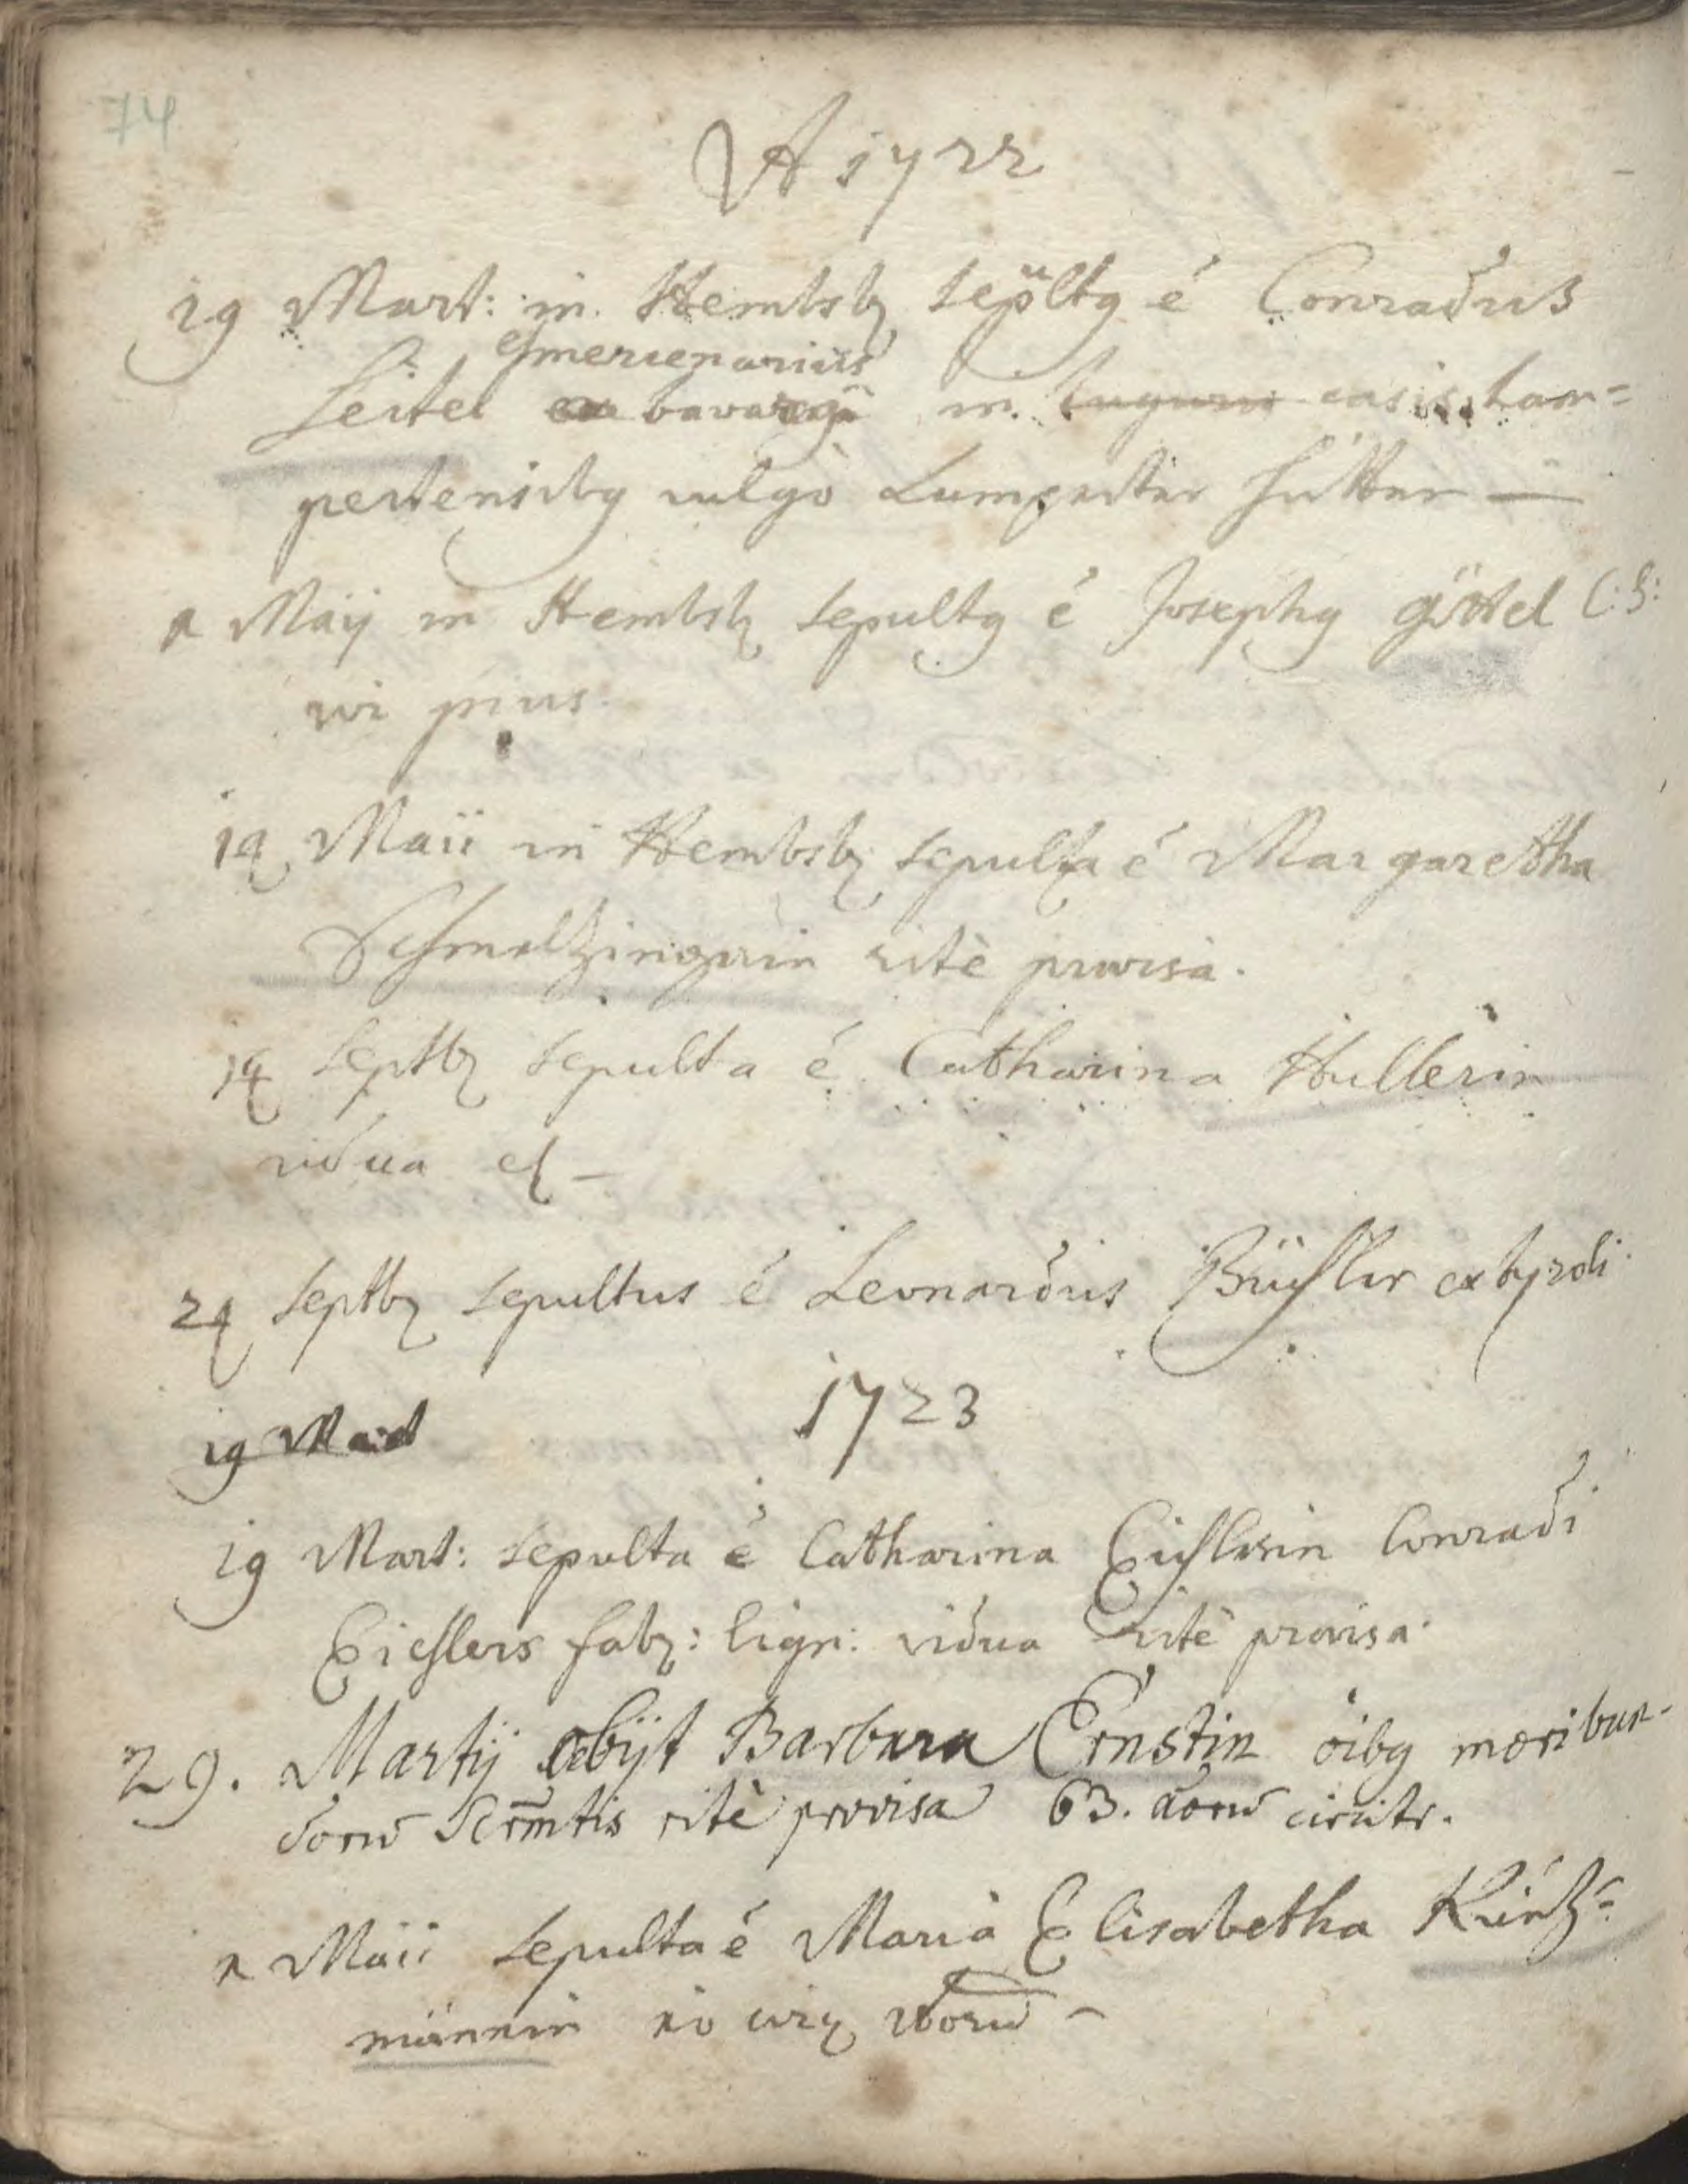 74
A 1722
19 Mart: in Hembsb sepultg é Conradus
mercenarius
Seitel bavarg in casis Lam=
pertensibg vulgò Lamperter hütten —
2 Maÿ in Hembsb sepultg é Josephg göttel
vir pius.
14 Maii in Hembsb sepulta é Margaretha
Schmeltzingerin ritè provisa.
14 septb sepulta é Catharina Hullerin
vidua
24 septb sepultus é Leonardus Büchler ex tyroli
1723
19 Mart: sepulta é Catharina Eichlerin Conradi
Eichlers fabr: lign: vidua ritè provisa.
29. Martÿ obÿt Barbara Ernstin oibg moribun-
dorū Scrmtis ritè provisa 63. aorū circitr.
2 Maii sepulta é Maria Elisabetha Küntz=
männin